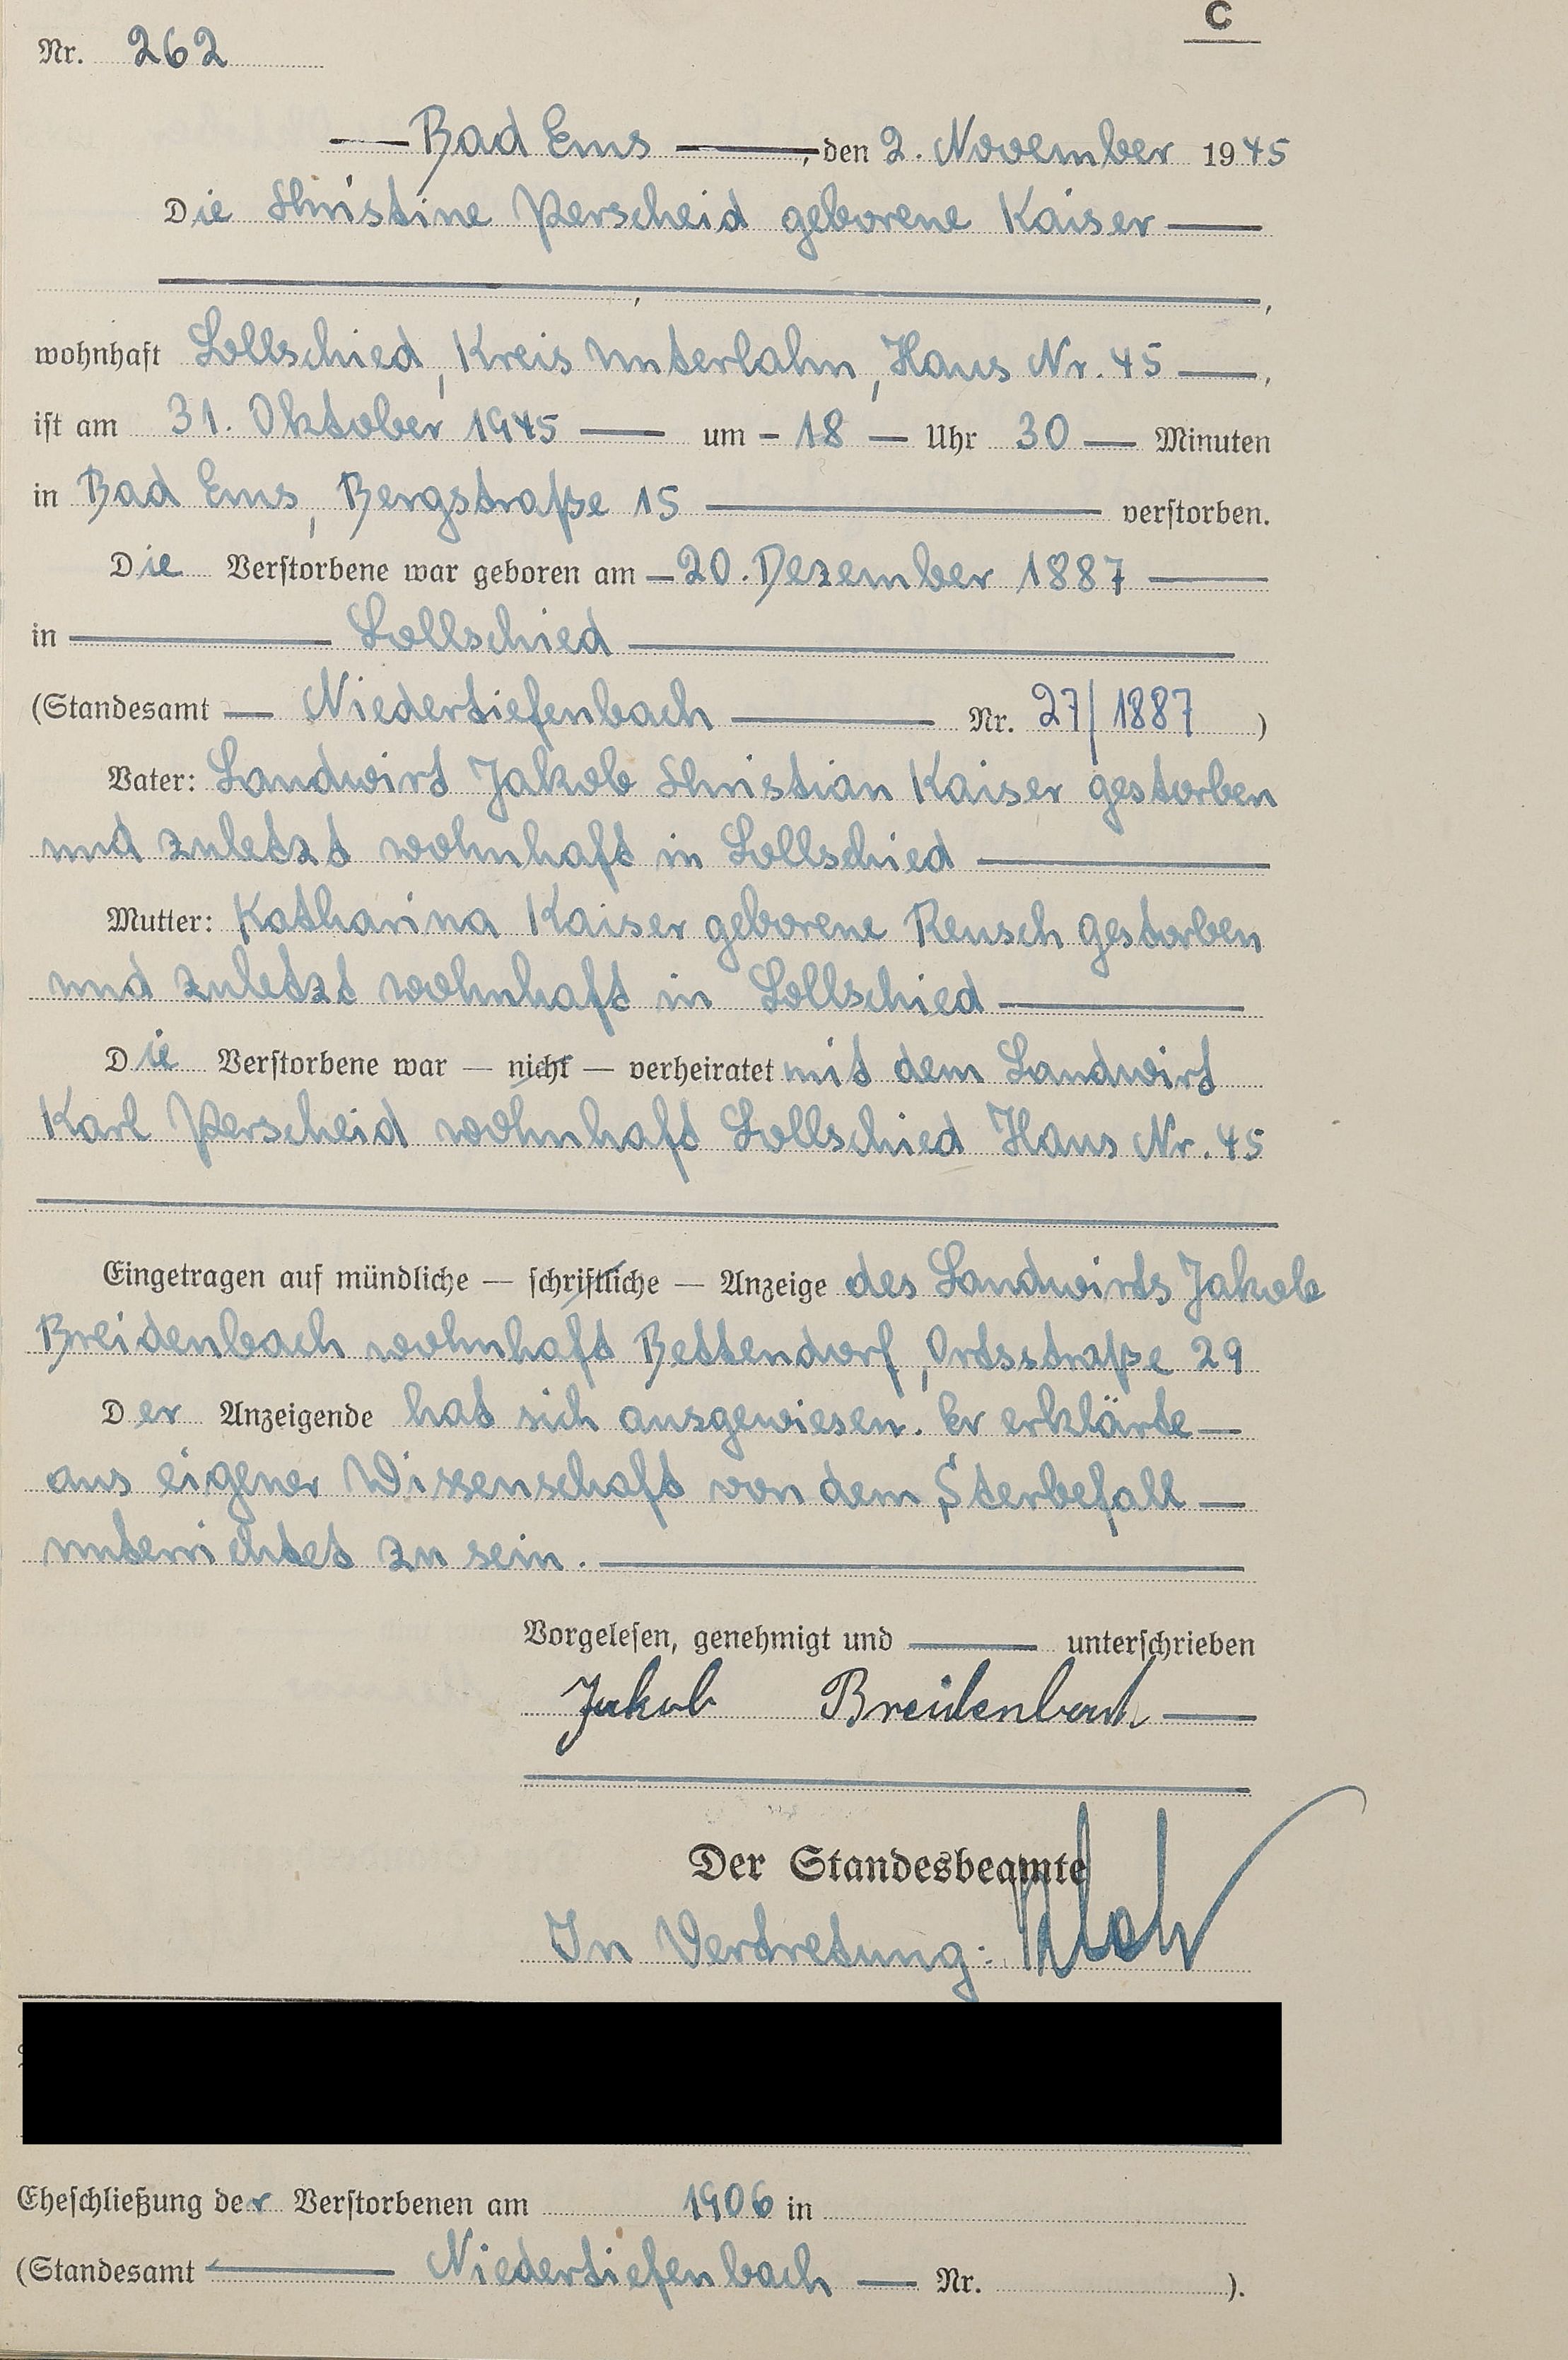 C
Nr. 262
Bad Ems, den 2. November 1945
Die Christine Perscheid geborene Kaiser
,
wohnhaft Lollschied, Kreis Unterlahn, Haus Nr. 45,
ist am 31. Oktober 1945 um 18 Uhr 30 Minuten
in Bad Ems, Bergstraße 15 verstorben.
Die Verstorbene war geboren am 20. Dezember 1887
in Lollschied
(Standesamt Niedertiefenbach Nr. 27/1887)
Vater: Landwirt Jakob Christian Kaiser gestorben
und zuletzt wohnhaft in Lollschied
Mutter: Katharina Kaiser geborene Reusch gestorben
und zuletzt wohnhaft in Lollschied
Die Verstorbene war — nicht — verheiratet mit dem Landwirt
Karl Perscheid wohnhaft Lollschied Haus Nr. 45
Eingetragen auf mündliche — schriftliche — Anzeige des Landwirts Jakob
Breidenbach wohnhaft Bettendorf, Ortsstraße 29
Der Anzeigende hat sich ausgewiesen. Er erklärte
aus eigener Wissenschaft von dem Sterbefall
unterrichtet zu sein.
Vorgelesen, genehmigt und unterschrieben
Jakob Breidenbach
Der Standesbeamte
In Vertretung:
Eheschließung der Verstorbenen am 1906 in
(Standesamt Niedertiefenbach Nr. ).